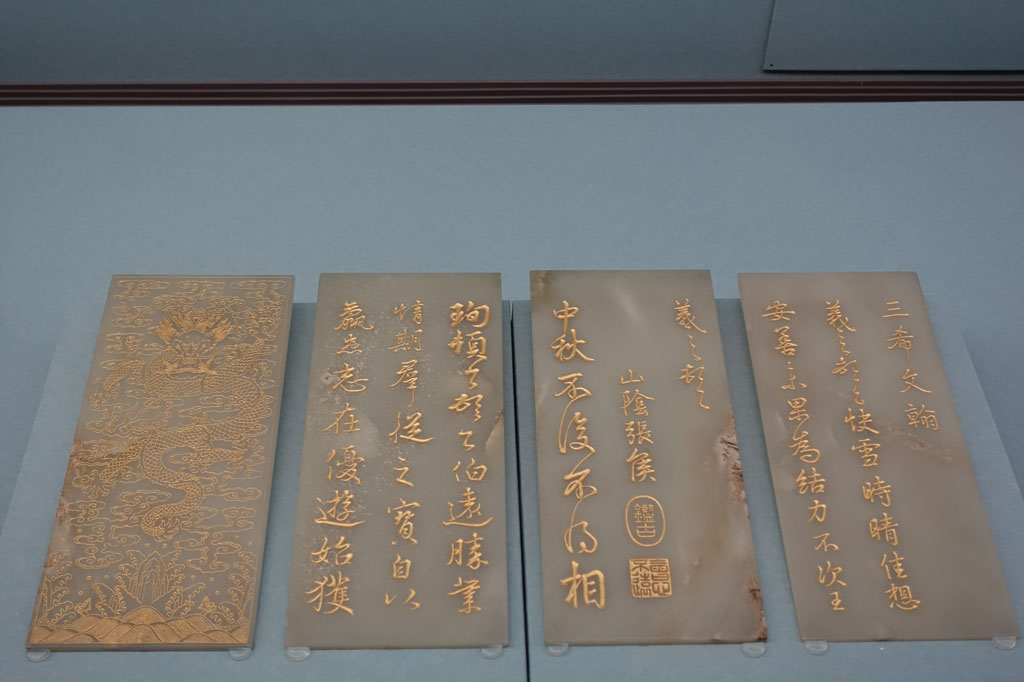 三希文翰
羲之頓首快雪時晴佳想
安善未果為結力不次王
羲之頓首
山陰張侯
鑑古
會心不遠
中秋不復不得相
珣頓首頓首伯遠勝業
情期羣從之寶自以
羸患志在優遊始獲